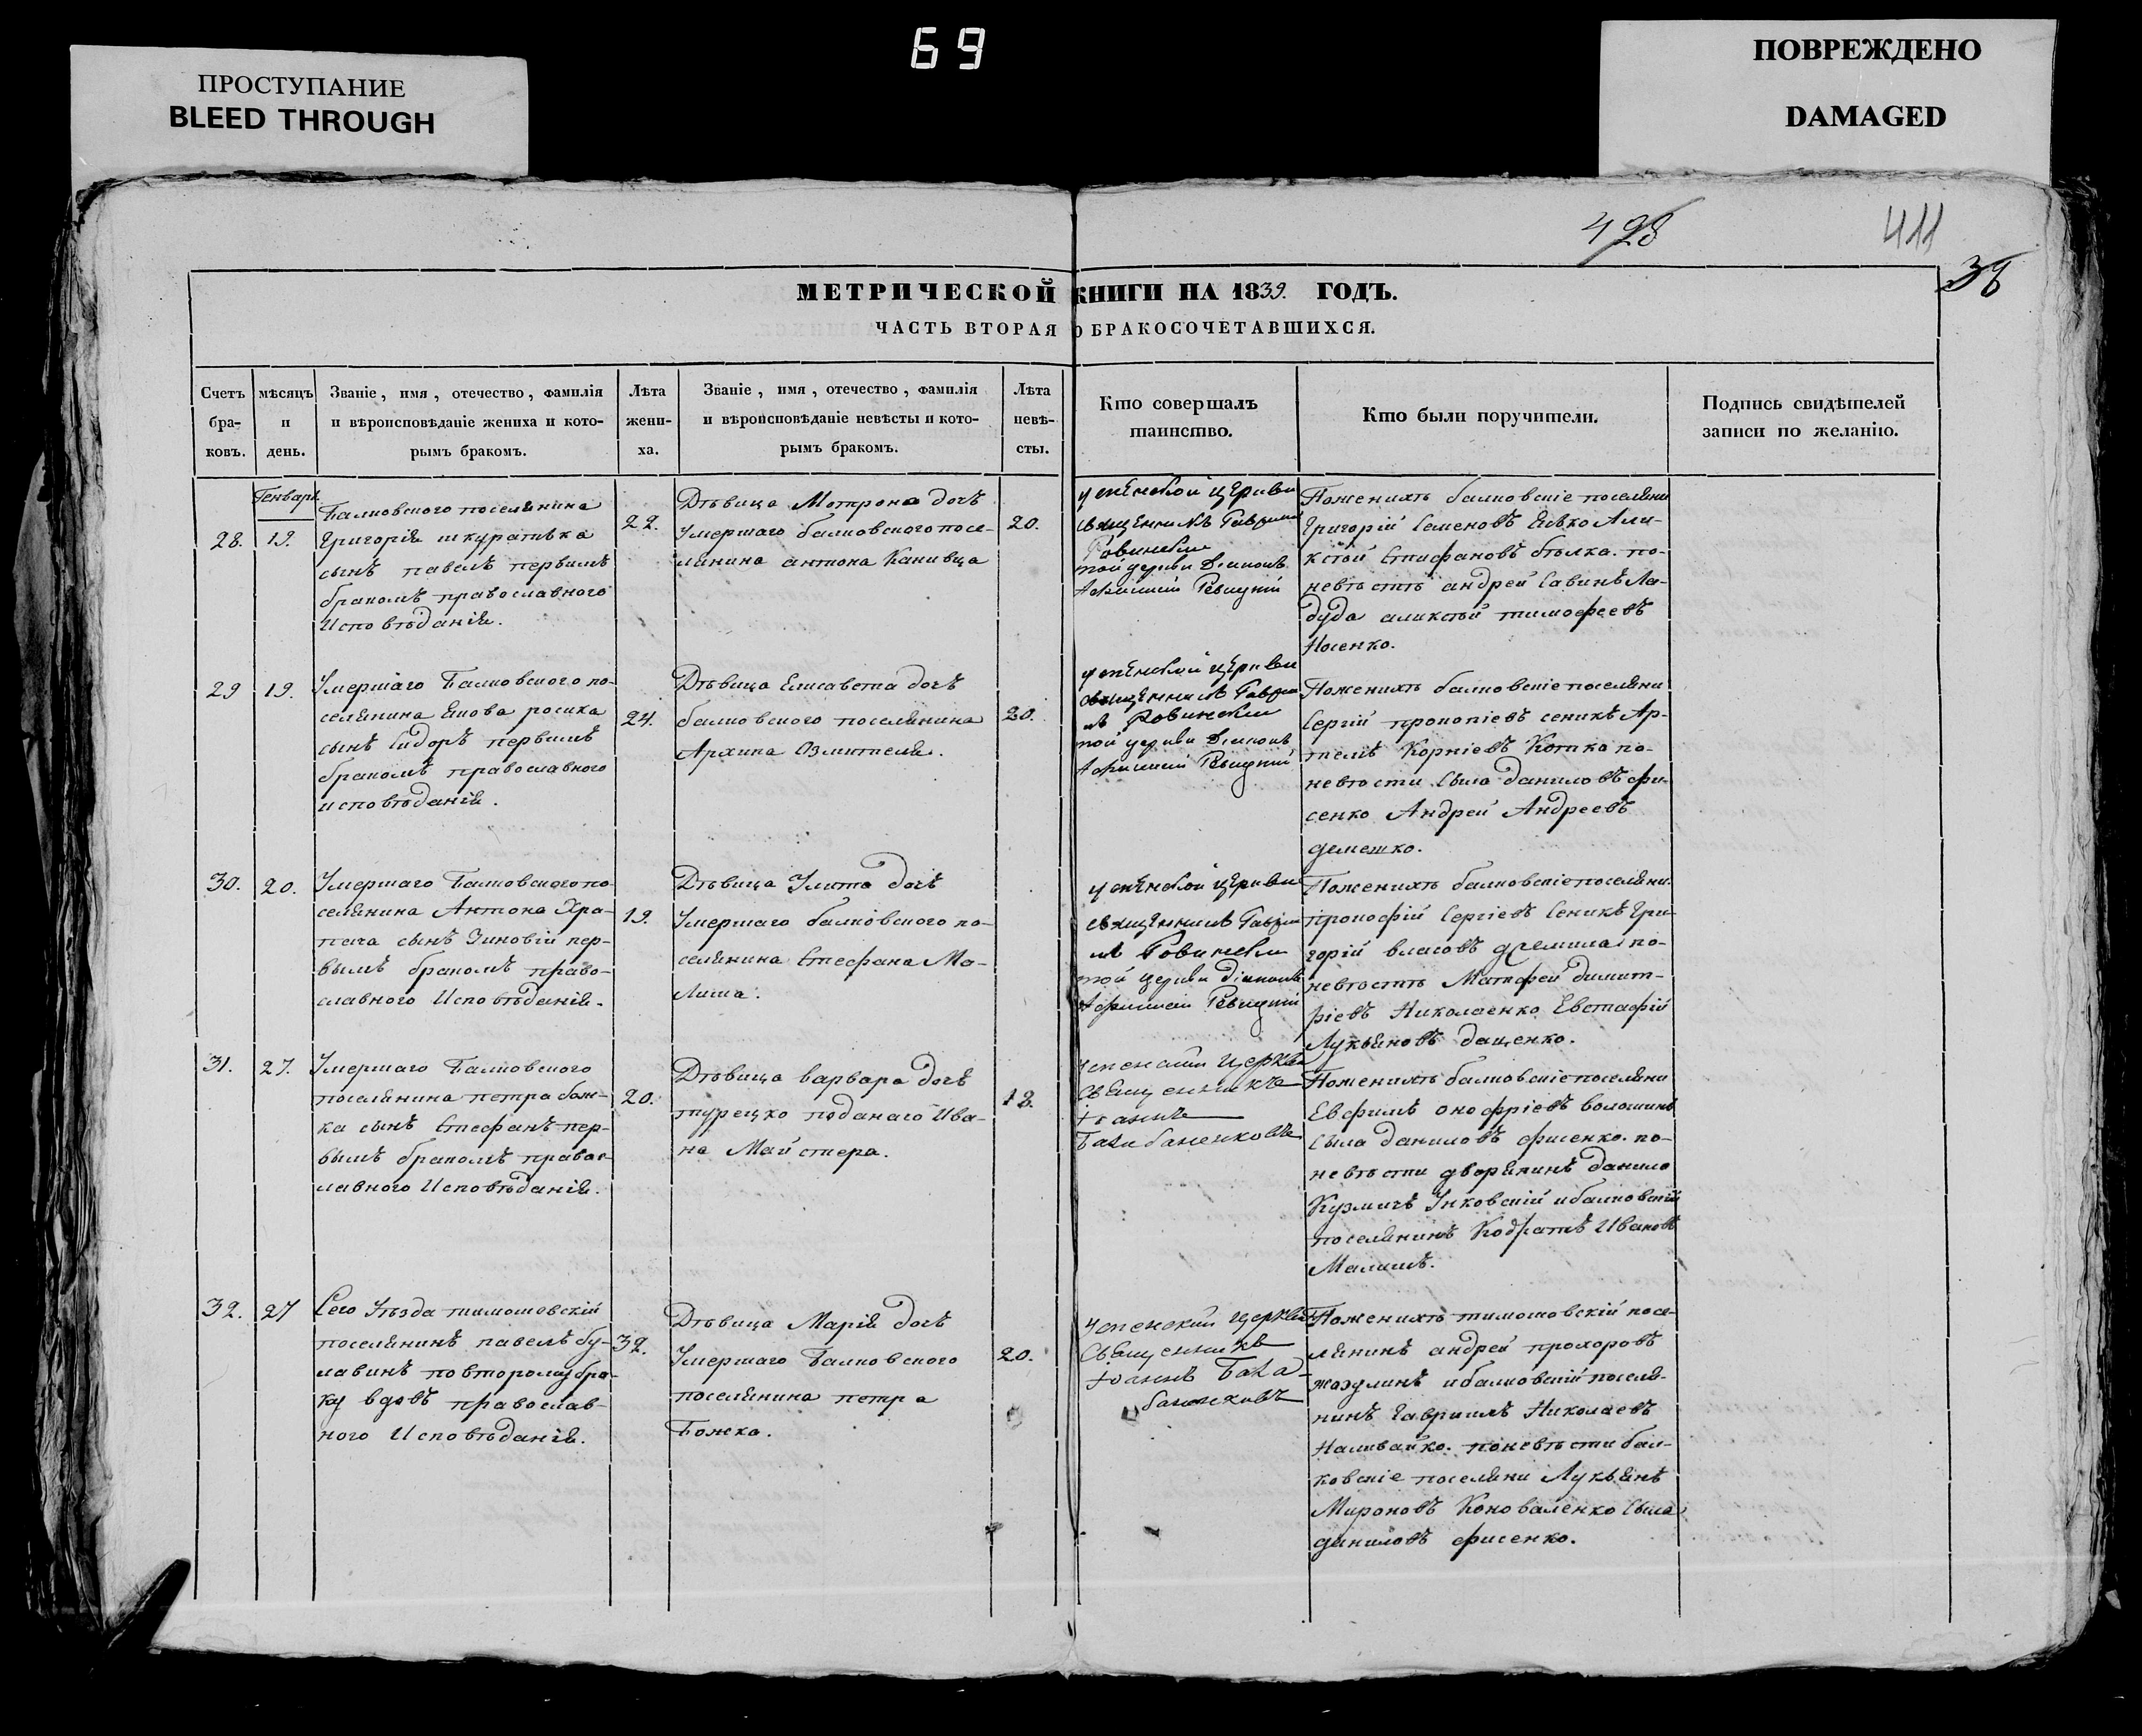 69
ПРОСТУПАНИЕ
BLEED THROUGH
ПОВРЕЖДЕНО
DAMAGED
428
411
МЕТРИЧЕСКОЙ КНИГИ НА 1839. ГОДЪ.
ЧАСТЬ ВТОРАЯ О БРАКОСОЧЕТАВШИХСЯ.
Счетъ
бра-
ковъ.
мѣсяцъ
и
день.
Званіе, имя, отечество, фамилія
и вѣроисповѣданіе жениха и кото-
рымъ бракомъ.
Лѣта
жени-
ха.
Званіе, имя, отечество, фамилія
и вѣроисповѣданіе невѣсты и кото-
рымъ бракомъ.
Лѣта
невѣ-
сты.
Кто совершалъ
таинство.
Кто были поручители.
Подпись свидѣтелей
записи по желанію.
Генварь
28.
19.
Балковского поселянина
Григорія шкуратька
сынъ павелъ первымъ
бракомъ православного
Исповѣданія.
22.
Дѣвица Мотрона дочъ
Умершаго балковского посе-
лянина антона Канивца
20.
успѣнской церкви
священникъ Гавріилъ
Ровински
той церкви Діаконъ
Ревуцкій
Поженихѣ балковскіе поселяни
Григорій Семеновъ Али-
ксѣй Стефановъ бѣлка. по-
невѣстѣ андрей Савинъ Ла-
дуда аликсѣй тимофеевъ
Носенко.
29
19.
Умершаго Балковского по-
селянина Якова росика
сынъ Сидоръ первымъ
бракомъ православного
исповѣданія.
24.
Дѣвица Елисавета дочъ
балковского поселянина
Архипа Озлителя.
20.
успѣнской церкви
священникъ Гаврі-
лъ Ровински
той церкви Діаконъ
Ревуцкій
Поженихѣ балковскіе поселяни
Сергій прокопіевъ сеникъ Ар-
темъ Корніевъ Котко по-
невѣсти Сыла даниловъ фи-
сенко Андрей Андреевъ
демешко.
30.
20.
Умершаго Балковского по-
селянина Антона Хра-
пача сынъ Зиновій пер-
вымъ бракомъ право-
славного Исповѣданія.
19.
Дѣвица Улита дочъ
Умершаго балковского по-
селянина Стефана Ма-
лиша.
успѣнской церкви
священникъ Гаврі-
лъ Ровински
той церкви Діаконъ
Ревуцкій
Поженихѣ балковскіе поселяни
прокофій Сергіевъ Сеникъ Гри-
горій власовъ по-
невѣстѣ Матфей димит-
ріевъ Николаенко Евстафій
Лукьяновъ даценко.
31.
27.
Умершаго Балковского
поселянина петра бож-
ка сынъ Стефанъ пер-
вымъ бракомъ правос-
лавного Исповѣданія.
20.
Дѣвица варвара дочъ
турецко поданаго Ива-
на Майстера.
18.
Успенскии церкви
Священникъ
Іоаннъ
Балабаненковъ
Поженихѣ балковскіе поселяни
Евфимъ онофріевъ волошинъ
Сыла даниловъ фисенко. по-
невѣсти дворянинъ данило
Кузмичъ Янковскій и балковскій
поселянинъ Кодратъ Ивановъ
Малишъ.
32.
27
Сего Уѣзда тимошовскій
поселянинъ павелъ бу-
лавинъ повторому бра-
ку вдовъ православ-
ного Исповѣданія.
32.
Дѣвица Марія дочъ
Умершаго Балковского
поселянина петра
Божка.
20.
Успенскии церкви
Священникъ
Іоаннъ Бала-
баненковъ
Поженихѣ тимошовскій посе-
лянинъ андрей прохоровъ
и балковскій поселя-
нинъ Гавриилъ Николаевъ
Наливайко. поневѣсти бал-
ковскіе поселяни Лукьянъ
Мироновъ Коноваленко Сыла
даниловъ фисенко.